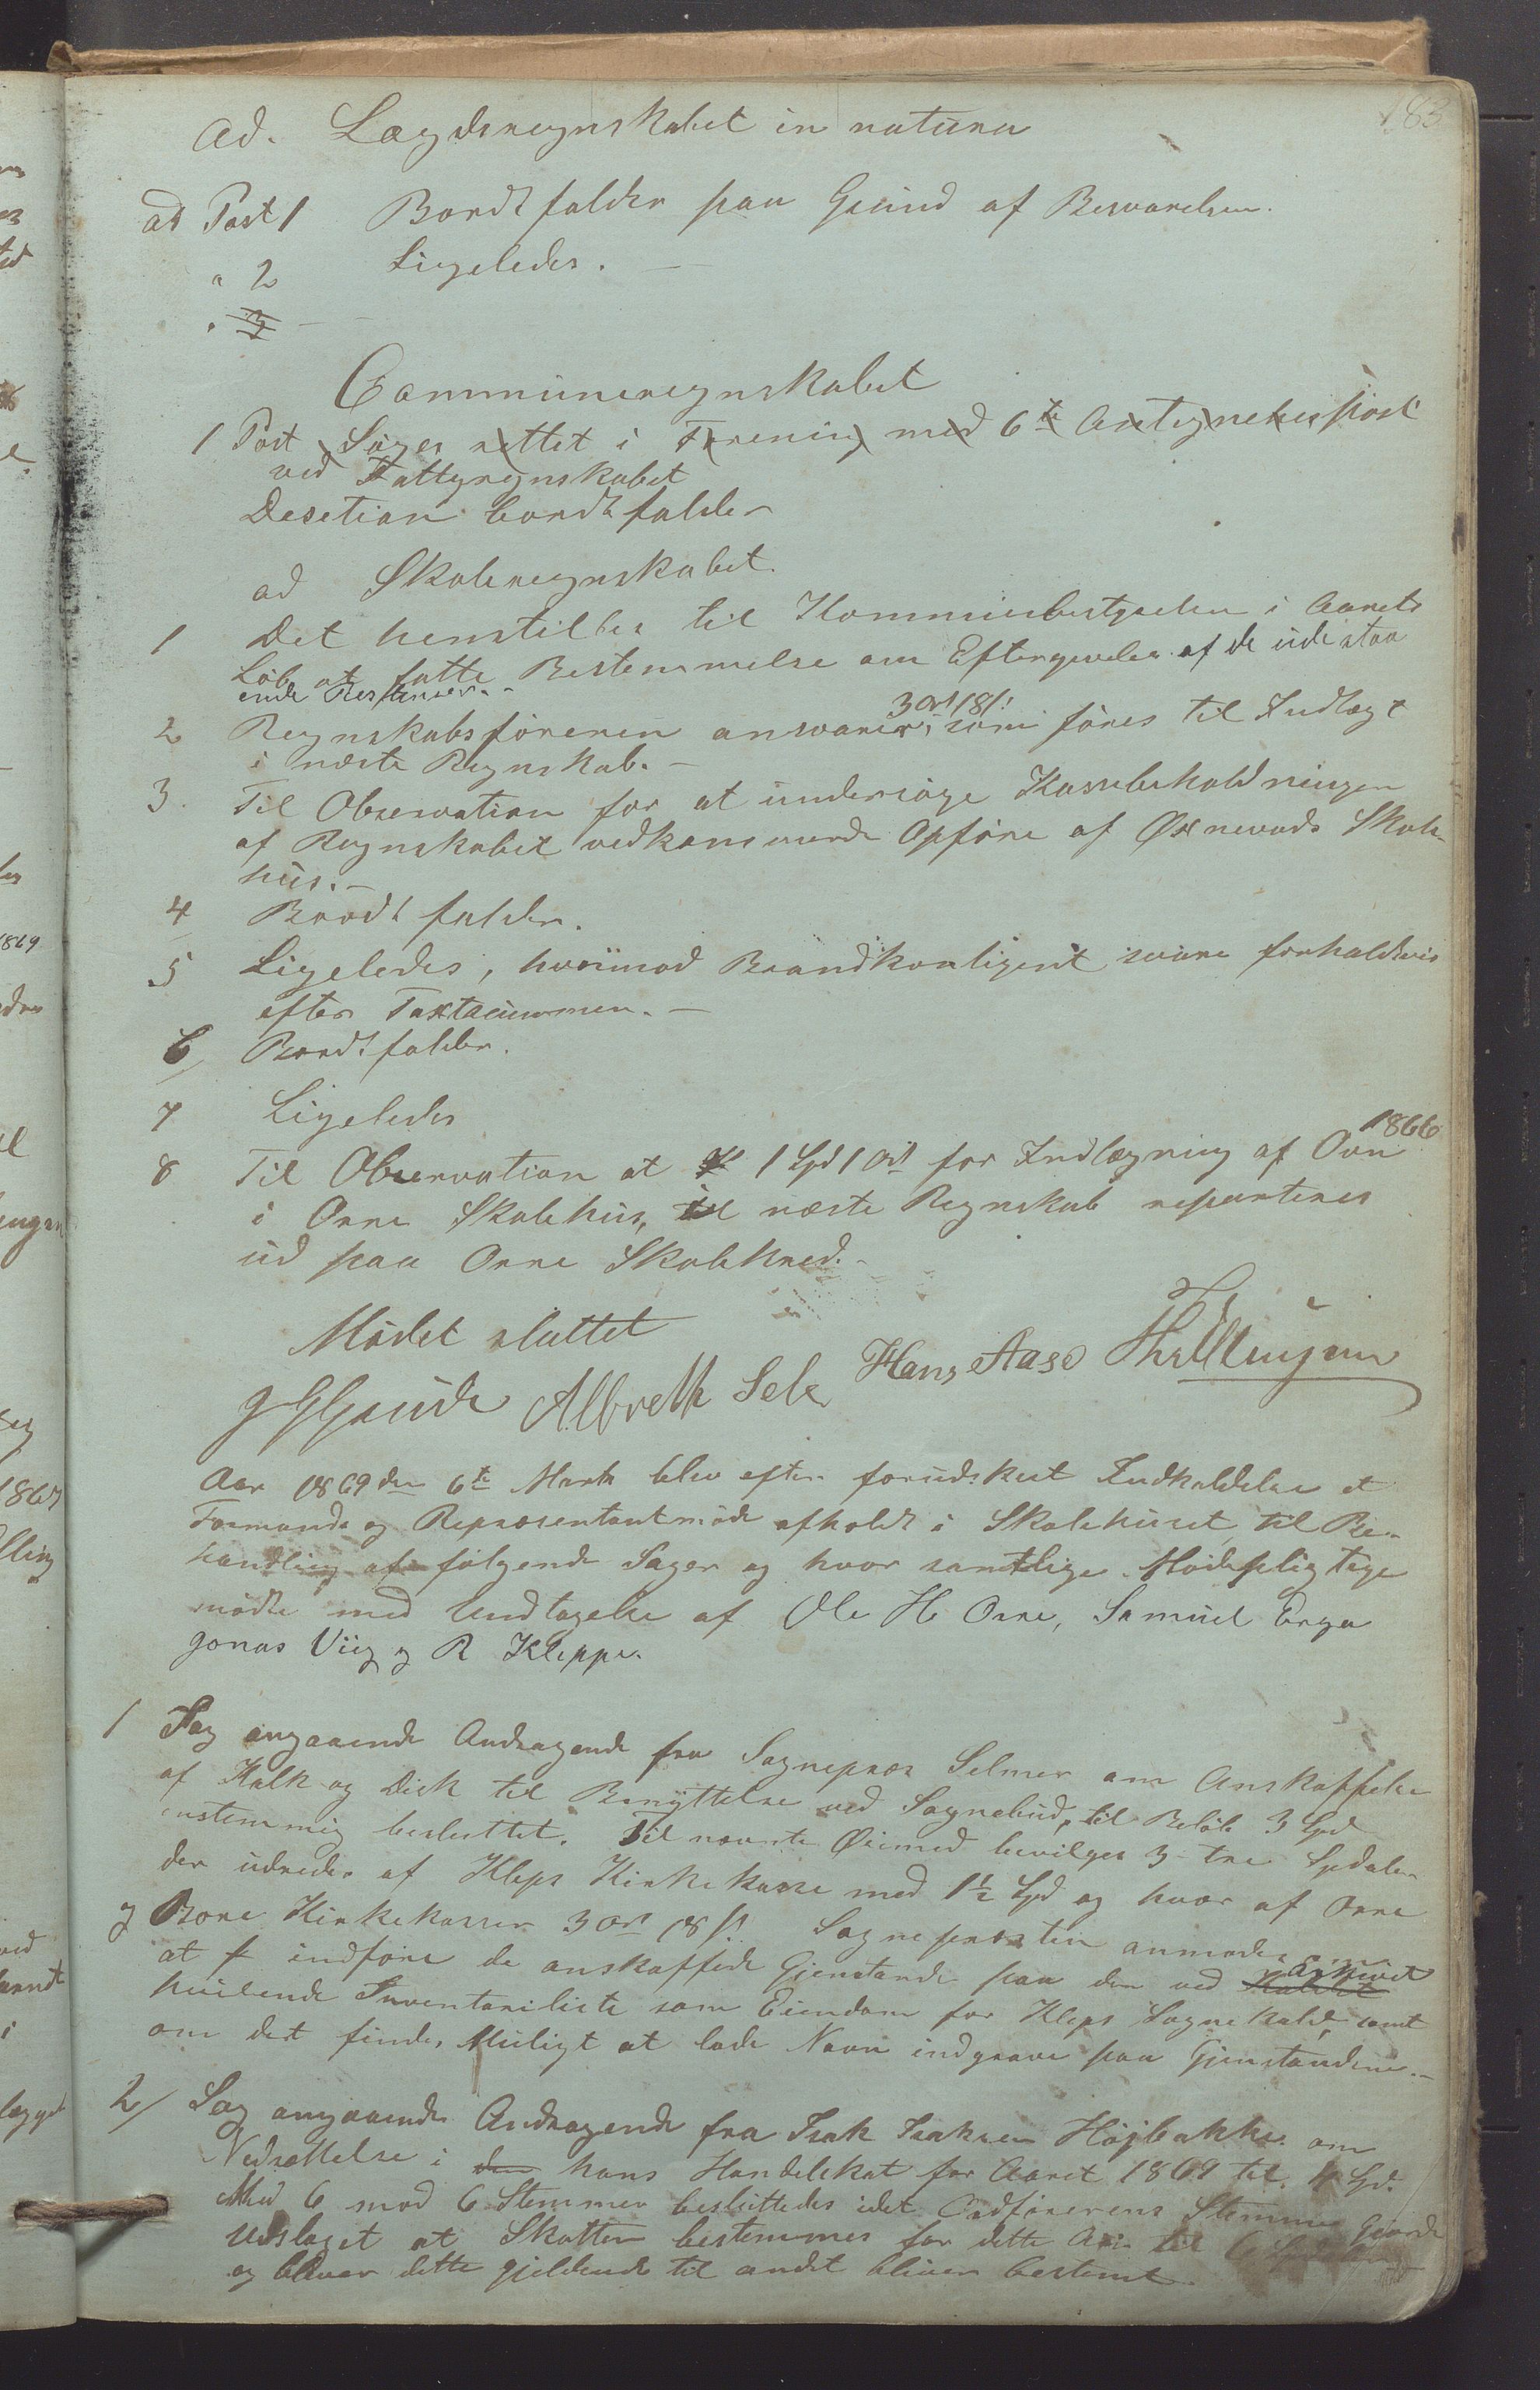 183
Ad. Lægdsregnskabet in natura
ad Post 1 Bordtfalder paa Grund af Besvarelsen.
" 2 Ligeledes. —
" 3 —
Communeregnskabet
1 Post Søges rettet i Forening med 6te Antegnelsespost
ved Fattigregnskabet
Desetion bordtfalder
ad Skoleregnskabet.
1 Det henstilles til Kommunebestyrelsen i Aarets
Løb at fatte Bestemmelse om Eftergivelse af de udestaa
ende Restancer. -
2 Regnskabsføreren ansvarer 3 ort 18 s. som føres til Indtægt
i næste Regnskab. —
3. Til Observation for at undersøge Kassebeholdningen
af Regnskabet vedkommende Opføre af Øxnevads Skole-
huus. —
4 Bordtfalder.
5 Ligeledes, hvorimod Brandkontigent svare forholdsvis
efter Taxtsummen. —
6/ Bordtfalder.
7 Ligeledes
8 Til Observation at 1 Spd 1 ort for Indlægning af Ovn 1866
i Orre Skolehuus, til næste Regnskab reparteres
ud paa Orre Skolekred. -
Mødet sluttet
G G Grude Albrett Sele Hans Aase
Aar 1869 den 6te Marts blev efter forudskeet Indkaldelse et
Formands og Repræsentantmøde afholdt i Skolehuset til Be-
handling af følgende Sager og hvor samtlige Mødepligtige
mødte med Undtagelse af Ole H Orre, Samuel Erga
Jonas Viig og R Kleppe.
1 Sag angaaende Andragende fra Sognepræs Selmer om Anskaffelse
af Kalk og Disk til Benyttelse ved Sognebud, til Beløb 3 Spd
enstemmig besluttet. Til nævnte Øiemed bevilges 3 - tre Spdaler
der udredes af Kleps Kirkekasse med 1½ Spd og hvor af Orre
og Bore Kirkekasser 3 ort 18 s. Sognepræsten anmodes om
at indføre de anskaffede Gjenstande paa den ved Arkivet
huilende Inventariliste som Eiendom for Kleps Sognekald, samt
om det findes Muligt at lade Navn indgrave paa Gjenstandene. —
2/ Sag angaaende Andragende fra Isak Isaksen Højbakke om
Nedsættelse i den hans Handelskat for Aaret 1869 til 4 Spd.
Med 6 mod 6 Stemmer besluttedes idet Ordførerens Stemme Gjorde
Udslaget at Skatten bestemmes for dette Aar til 6
og bliver dette gjeldende til andet bliver bestemt.